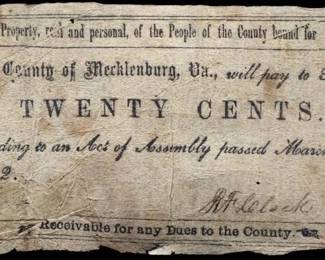 Property, real and personal, of the People of the County bound for
County of Mecklenburg, Va., will pay to
TWENTY CENTS.
ding to an Act of Assembly passed March
2.
Receivable for any Dues to the County.